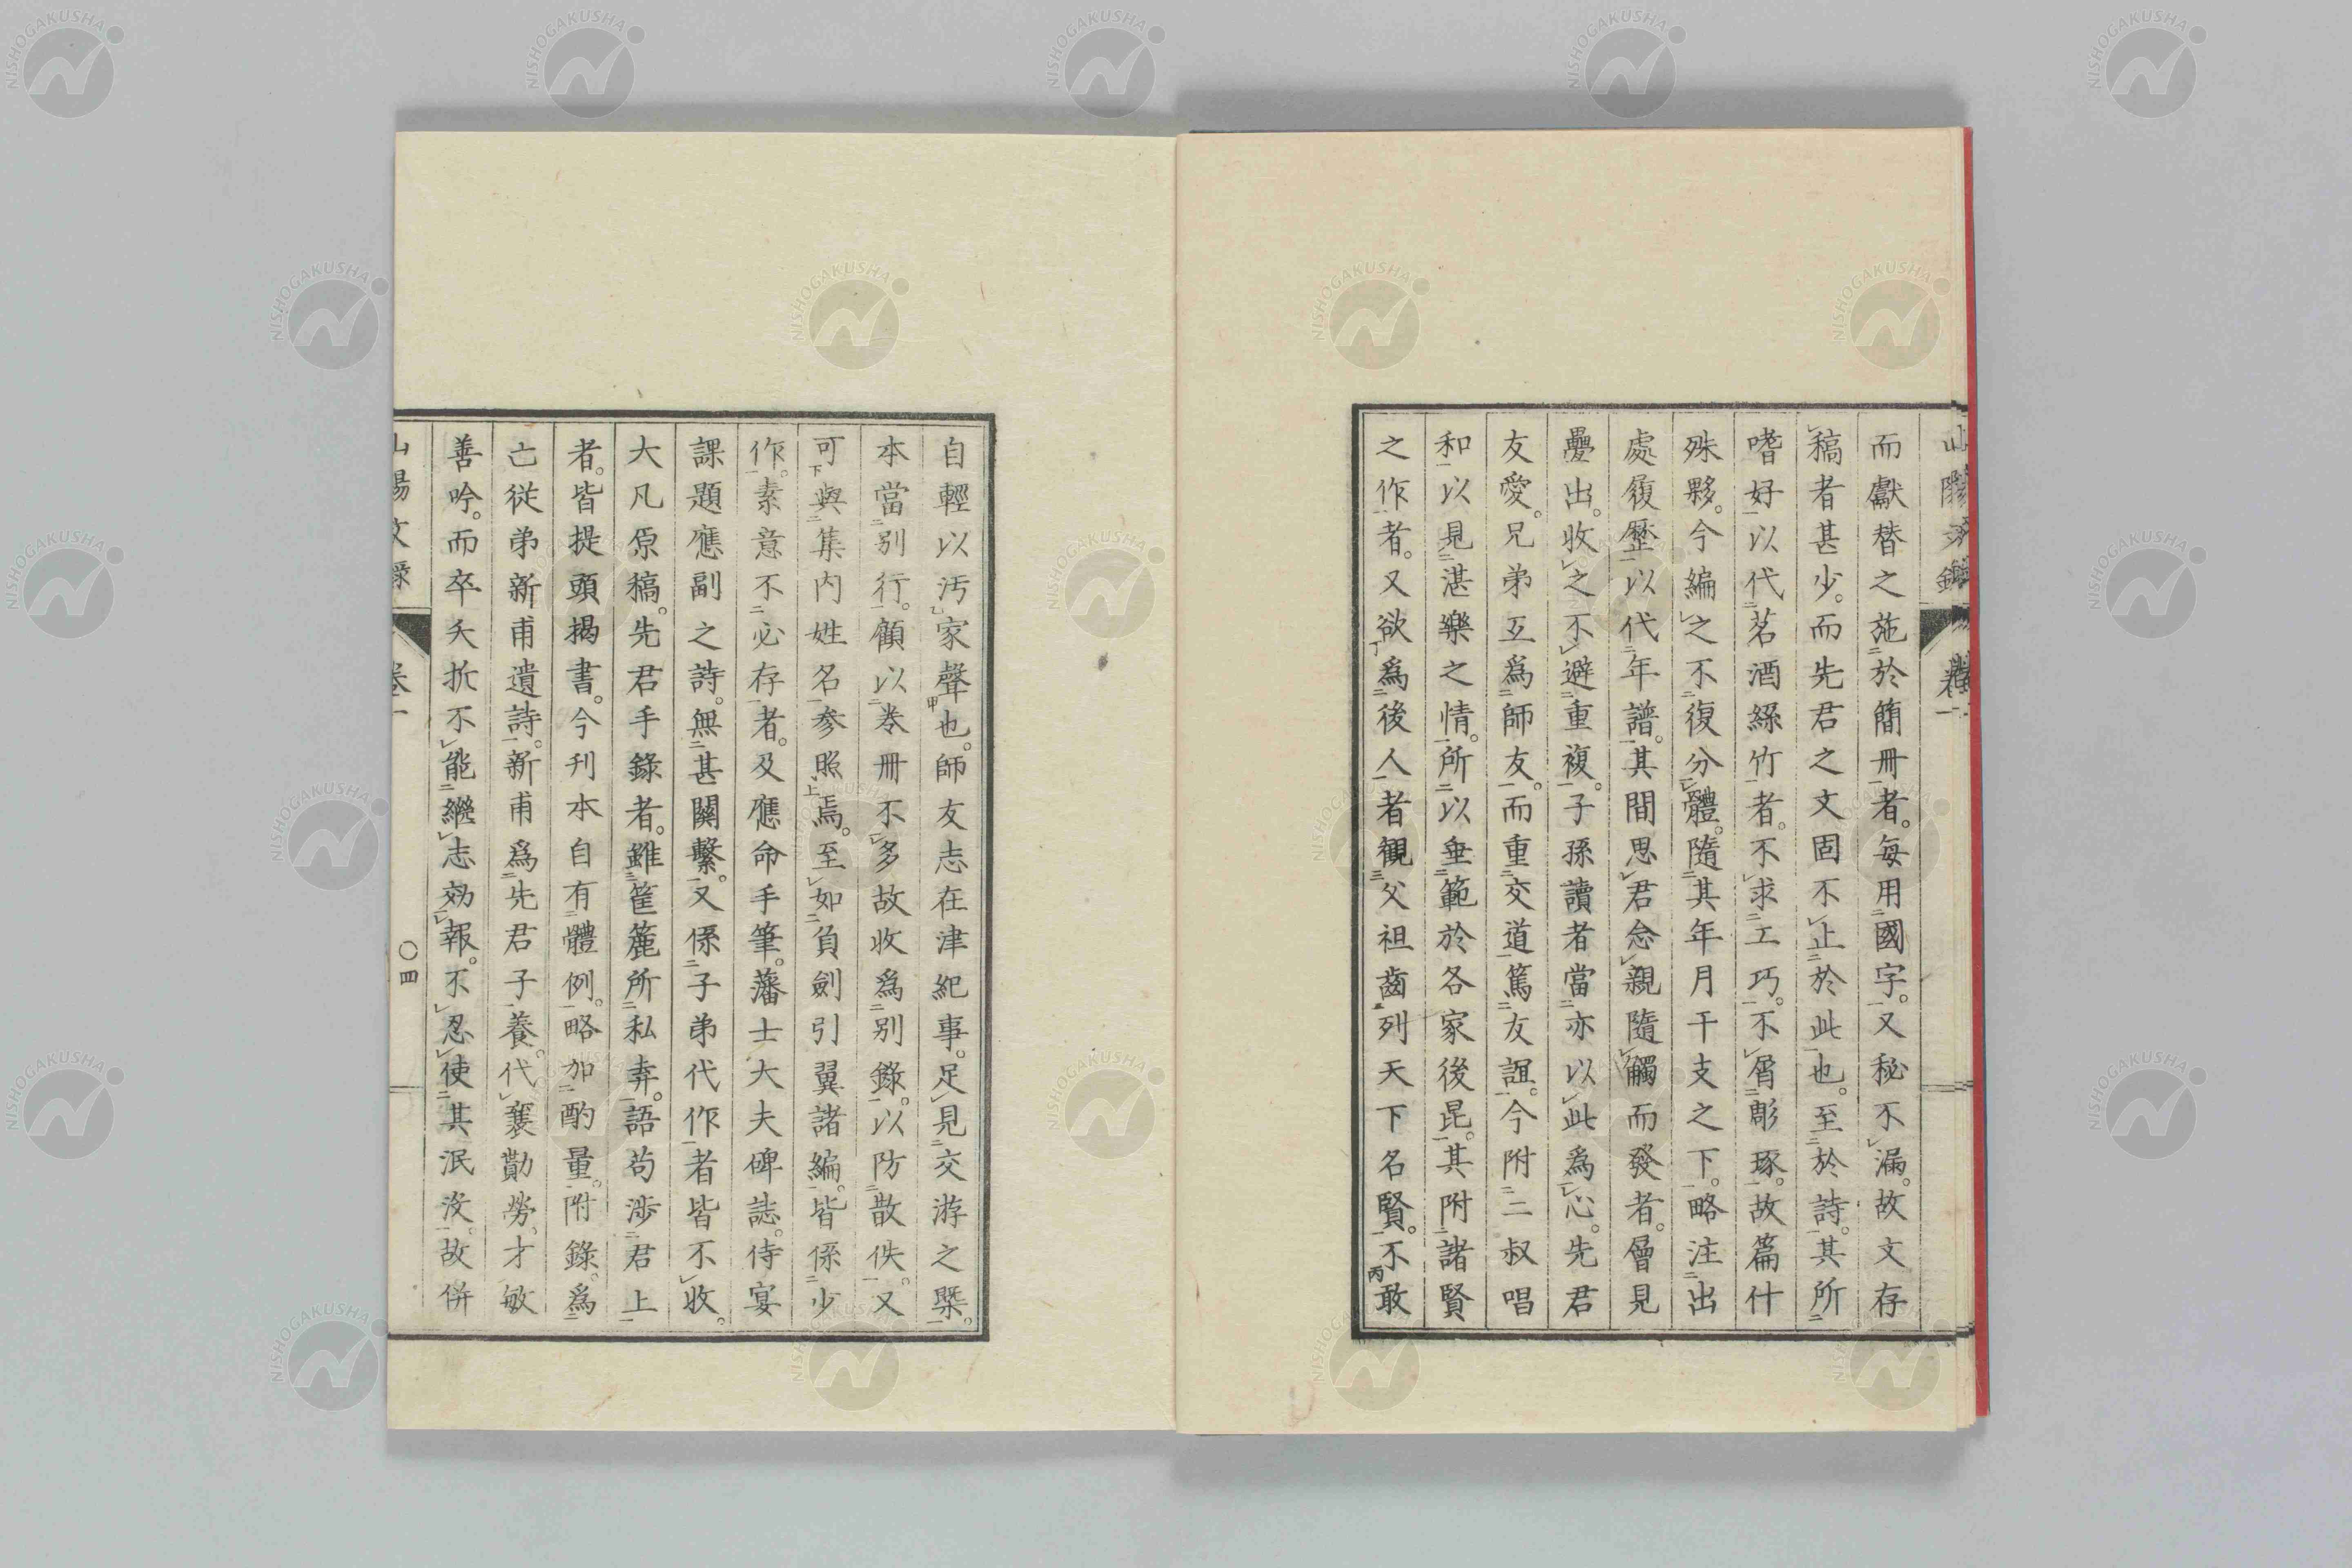 而獻替之施於簡冊者。每用國字。又秘不漏。故文存
稿者甚少。而先君之文固不止於此也。至於詩。其所
嗜好以代茗酒絲竹者。不求工巧。不屑彫琢。故篇什
殊夥。今編之不復分體。隨其年月干支之下。略注出
處履歷以代年譜。其間思君念親隨觸而發者。層見
疊出。收之不避重複。子孫讀者當亦以此為心。先君
友愛。兄弟互為師友。而重交道篤友誼。今附二叔唱
和以見湛樂之情。所以垂範於各家後昆。其附諸賢
之作者。又欲為後人者觀父祖齒列天下名賢。不敢
自輕以汚家聲也。師友志在津紀事。足見交游之槩。
本當別行。顧以卷冊不多故收為別錄。以防散佚。又
可與集內姓名參照焉。至如負劍引翼諸編。皆係少
作。素意不必存者。及應命手筆。藩士大夫碑誌。侍宴
課題應副之詩。無甚關繫。又係子弟代作者皆不收。
大凡原稿。先君手錄者。雖筐簏所私弆。語苟涉君上
者。皆提頭揭書。今刊本自有體例。略加酌量。附錄。為
亡從弟新甫遺詩。新甫為先君子養。代襄勤勞。才敏
善吟。而卒夭折不能繼志効報。不忍使其泯沒。故併
山陽文錄
卷一
〇四
NISHOGAKUSHA